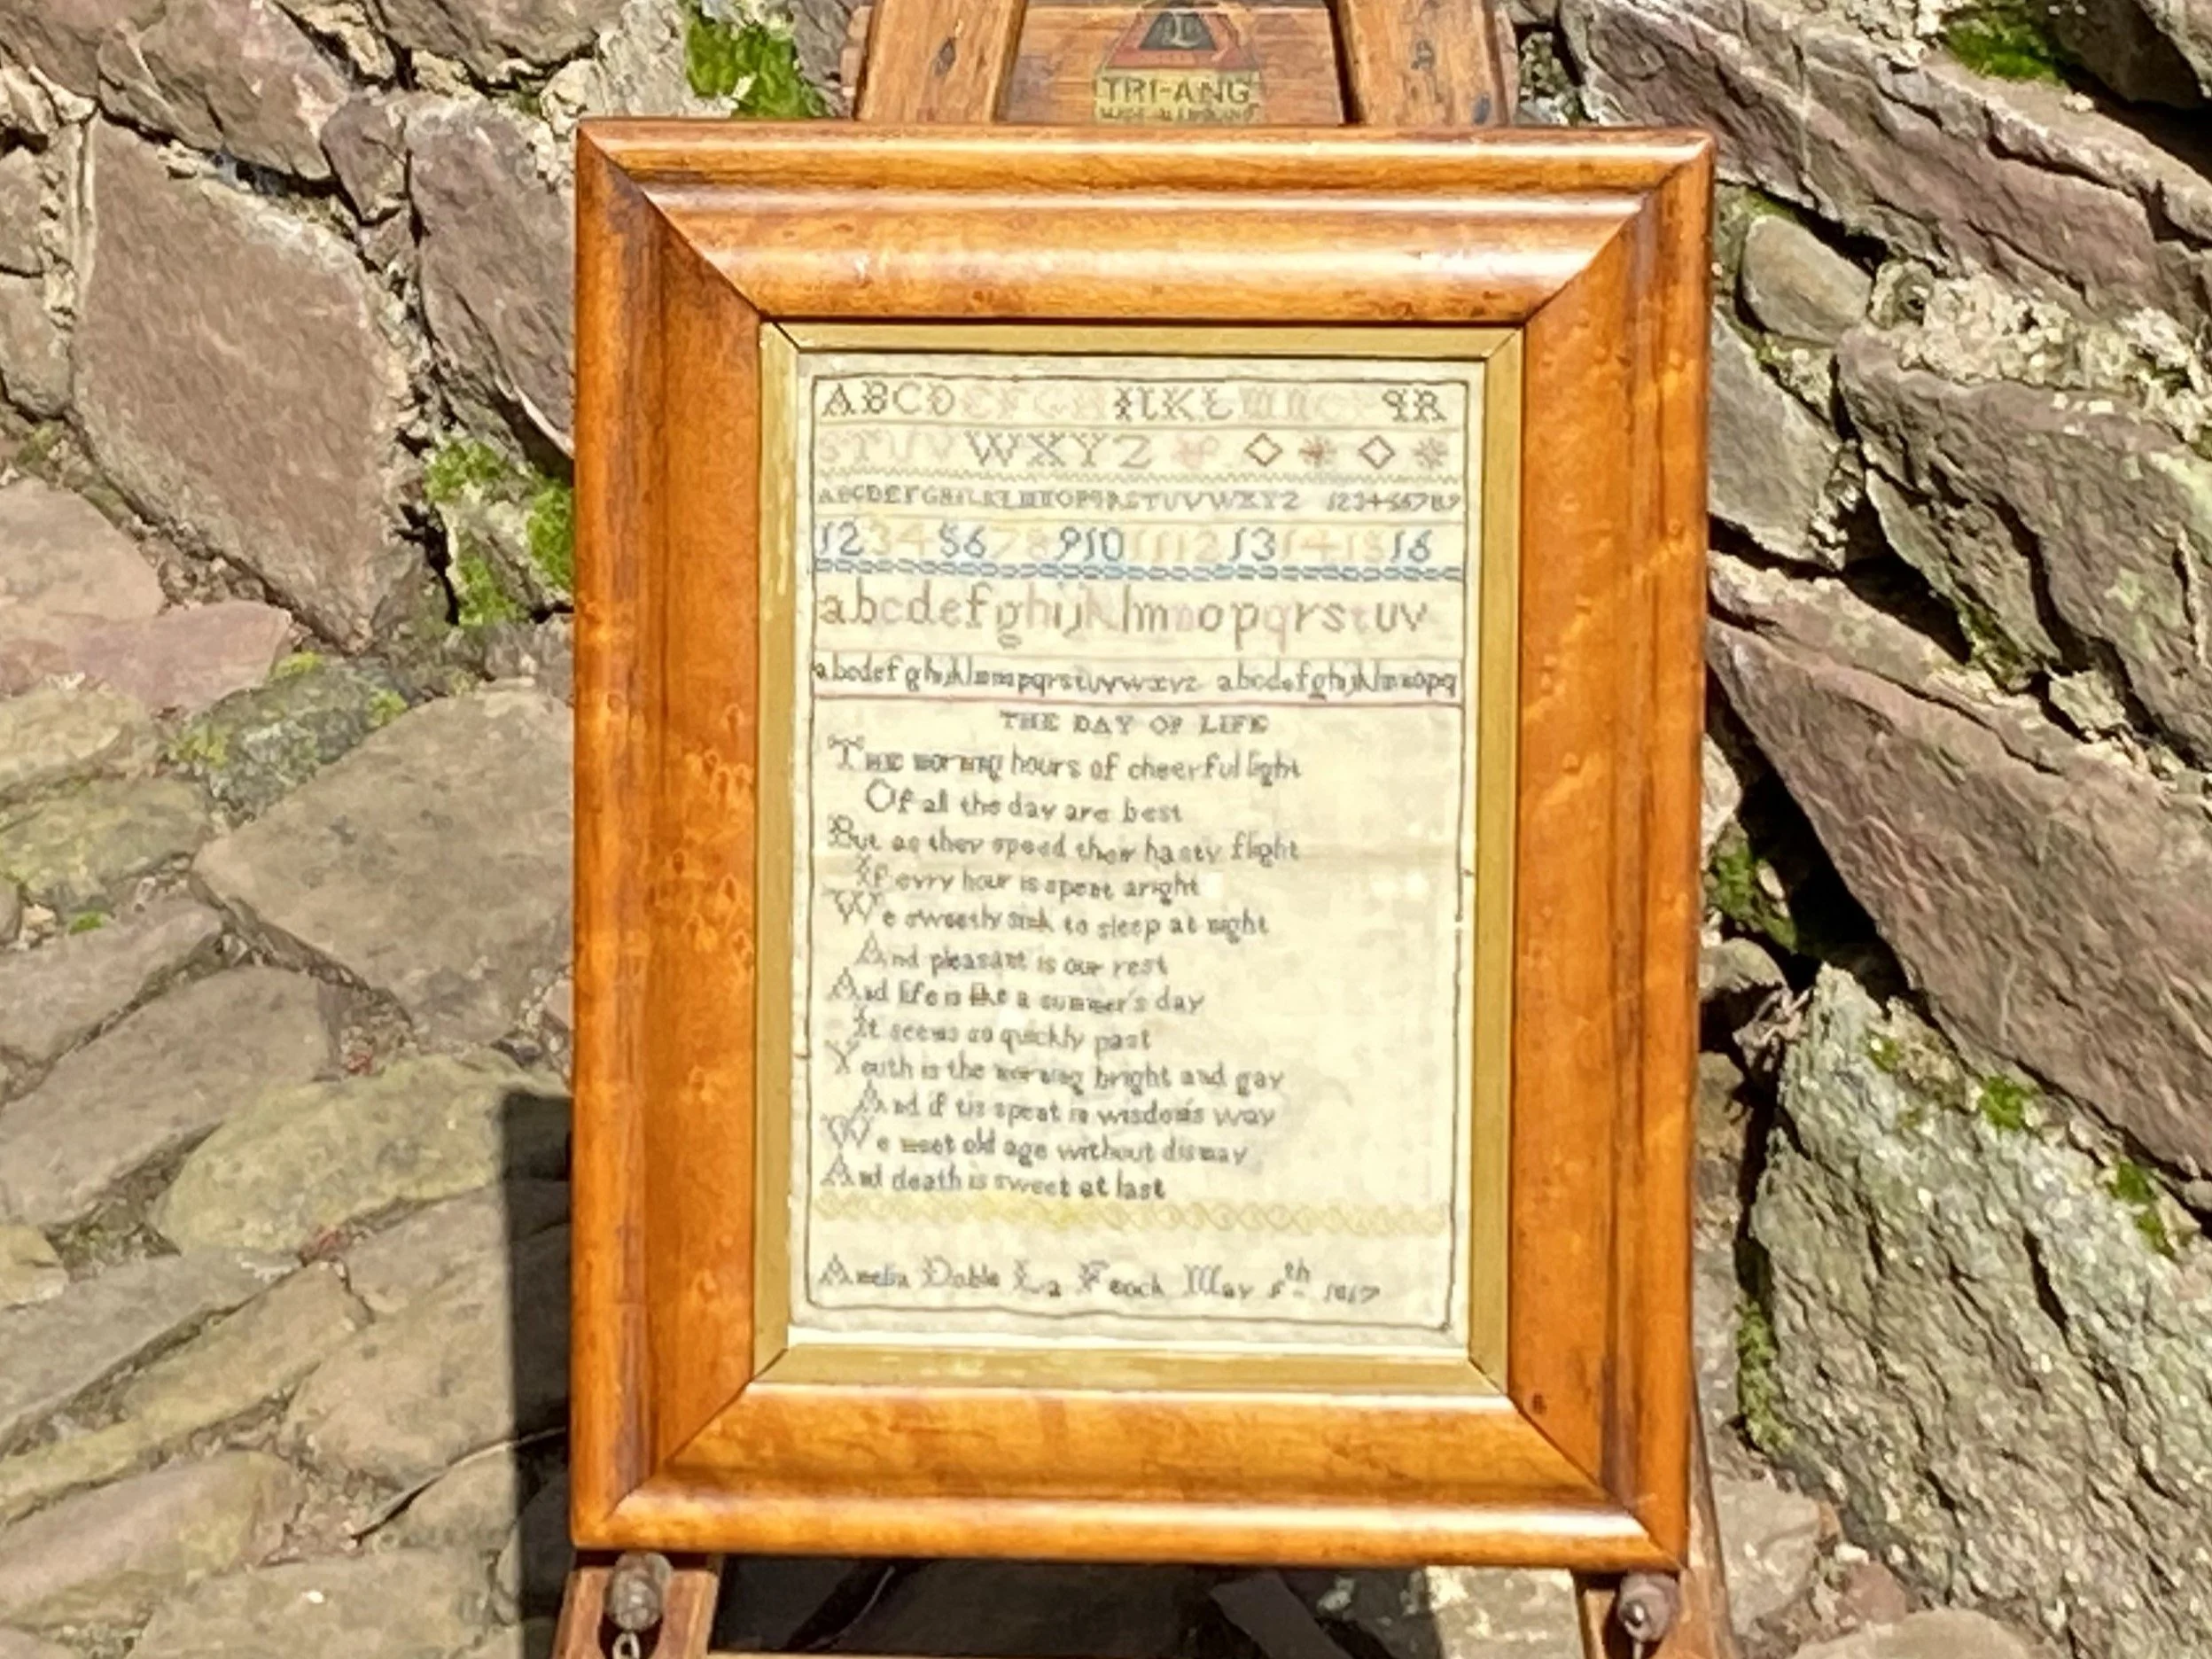 TRI-ANG
A B C D E F G H I K L M N O P Q R
S T U V W X Y Z
A B C D E F G H I K L M N O P Q R S T U V W X Y Z 1 2 3 4 5 6 7 8 9
1 2 3 4 5 6 7 8 9 10 11 12 13 14 15 16
a b c d e f g h i j k l m n o p q r s t u v
a b c d e f g h i j k l m n o p q r s t u v w x y z a b c d e f g h i j k l m n o p q
THE DAY OF LIFE
The morning hours of cheerful light
Of all the day are best
But as they speed their hasty flight
If evry hour is spent aright
We sweetly sink to sleep at night
And pleasant is our rest
And life is like a summer's day
It seems so quickly past
Youth is the morning bright and gay
And if tis spent in wisdom's way
We meet old age without dismay
And death is sweet at last
Amelia Doble La Feock May